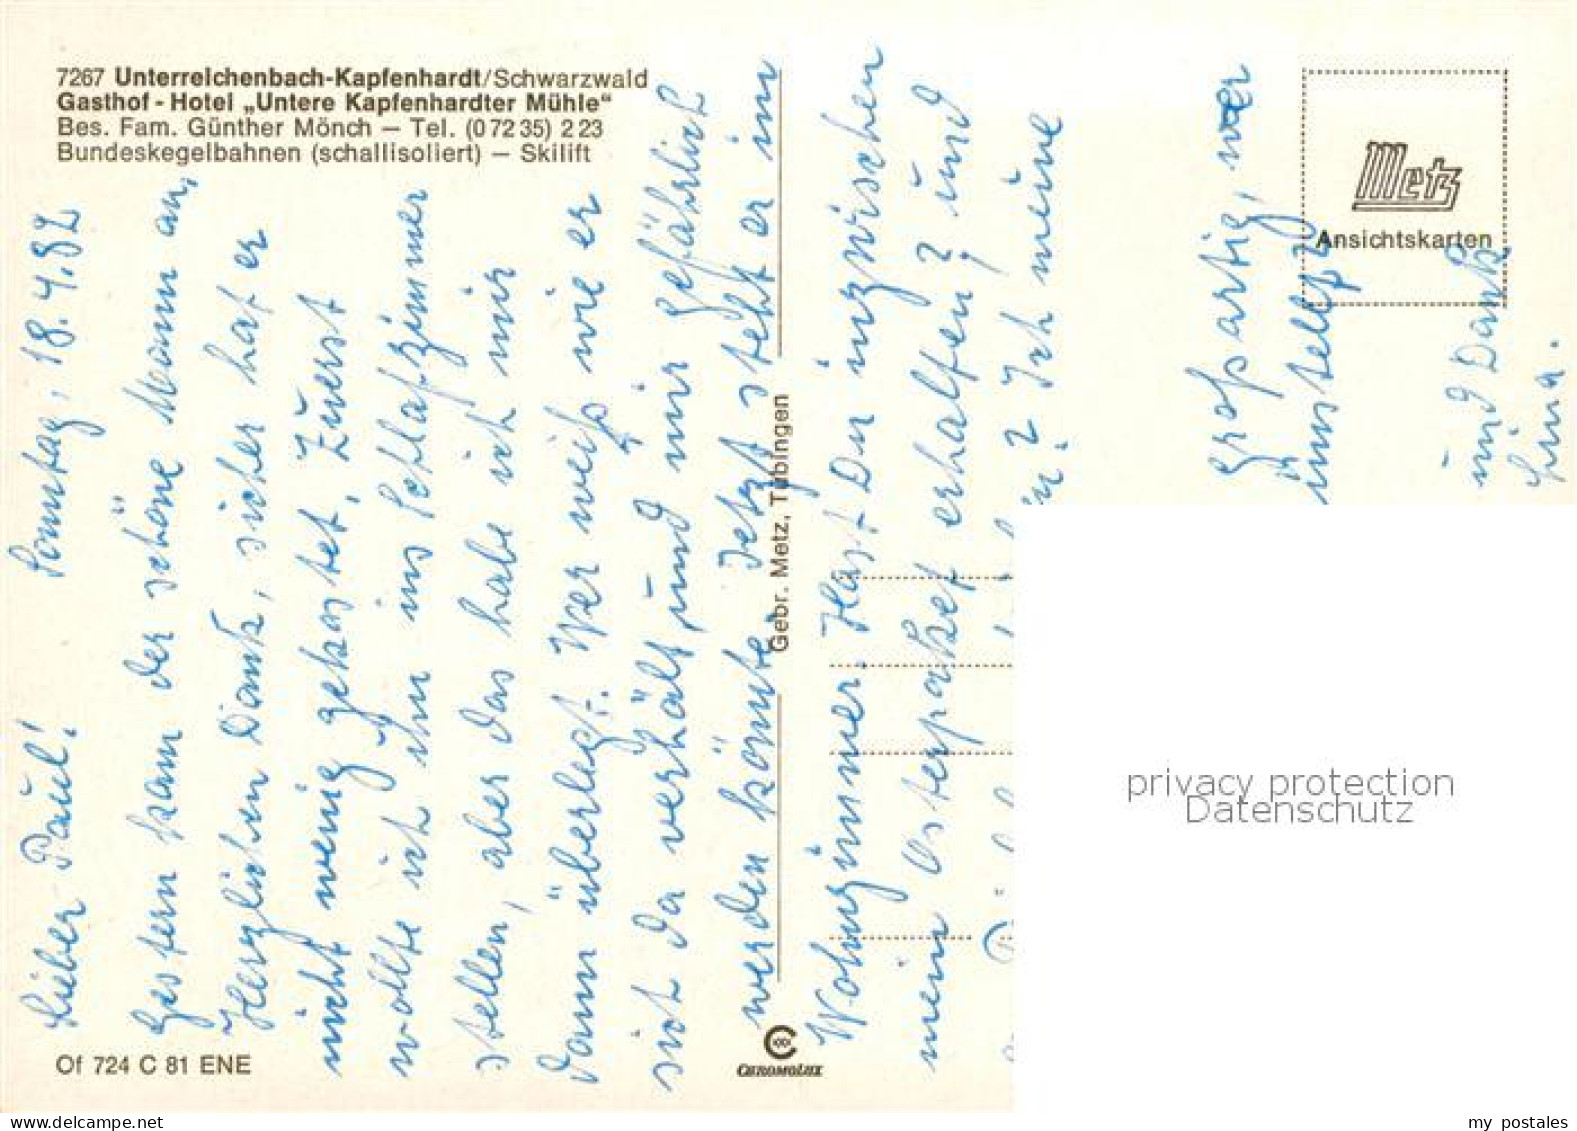 7267 Unterreichenbach-Kapfenhardt/Schwarzwald
Gasthof - Hotel „Untere Kapfenhardter Mühle“
Bes. Fam. Günther Mönch — Tel. (0 72 35) 2 23
Bundeskegelbahnen (schallisoliert) — Skilift
Metz
Ansichtskarten
Sonntag, 18.4.82
Lieber Paul!
Gestern kam der schöne Mann an,
Herzlichen Dank, sicher hat er
nicht wenig gekostet. Zuerst
wollte ich ihn ins Schlafzimmer
stellen, aber das habe ich mir
dann überlegt. Wer weiß wie er
sich da verhält, und mir gefährlich
werden könnte. Jetzt steht er im
Wohnzimmer. Hast Du inzwischen
mein Osterpaket erhalten? und
? Ich meine
großartig, wer
umstellt?
und Dank
Lina.
Gebr. Metz, Tübingen
Of 724 C 81 ENE
CHROMOLUX
privacy protection
Datenschutz
my postales
www.delcampe.net